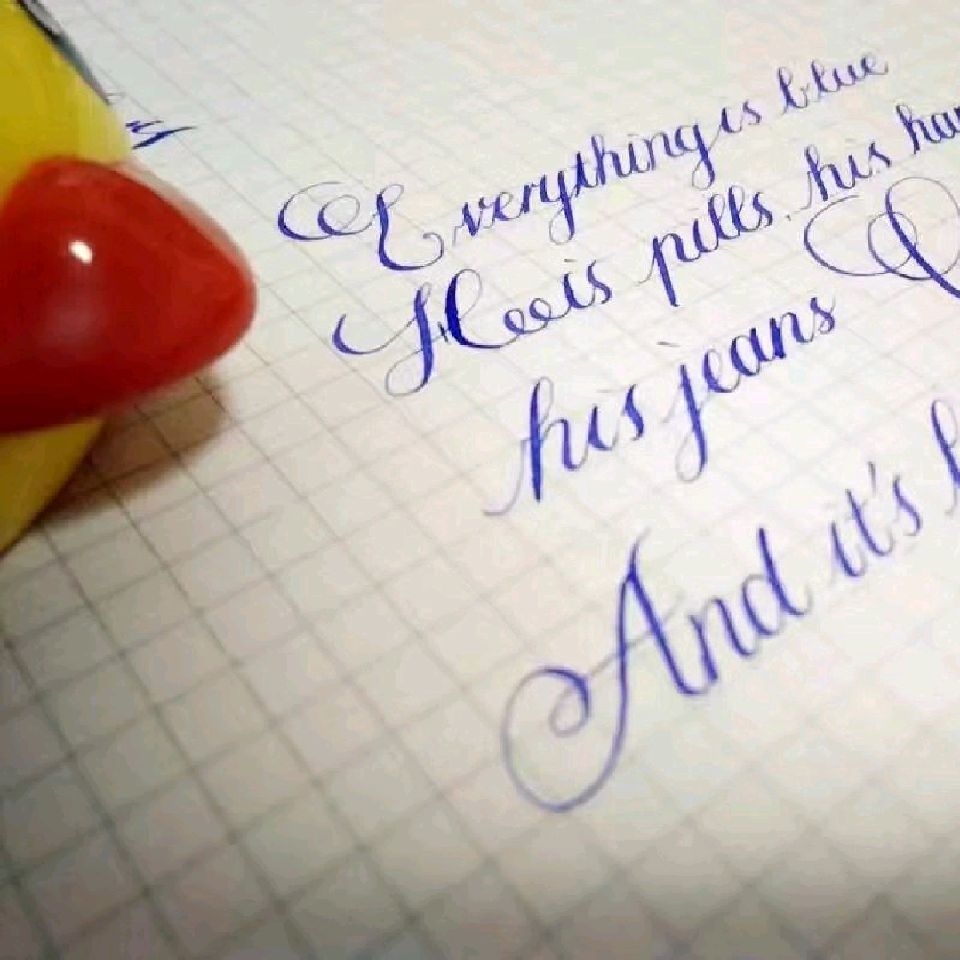 Everything is blue
He is pills his
his jeans
And it's